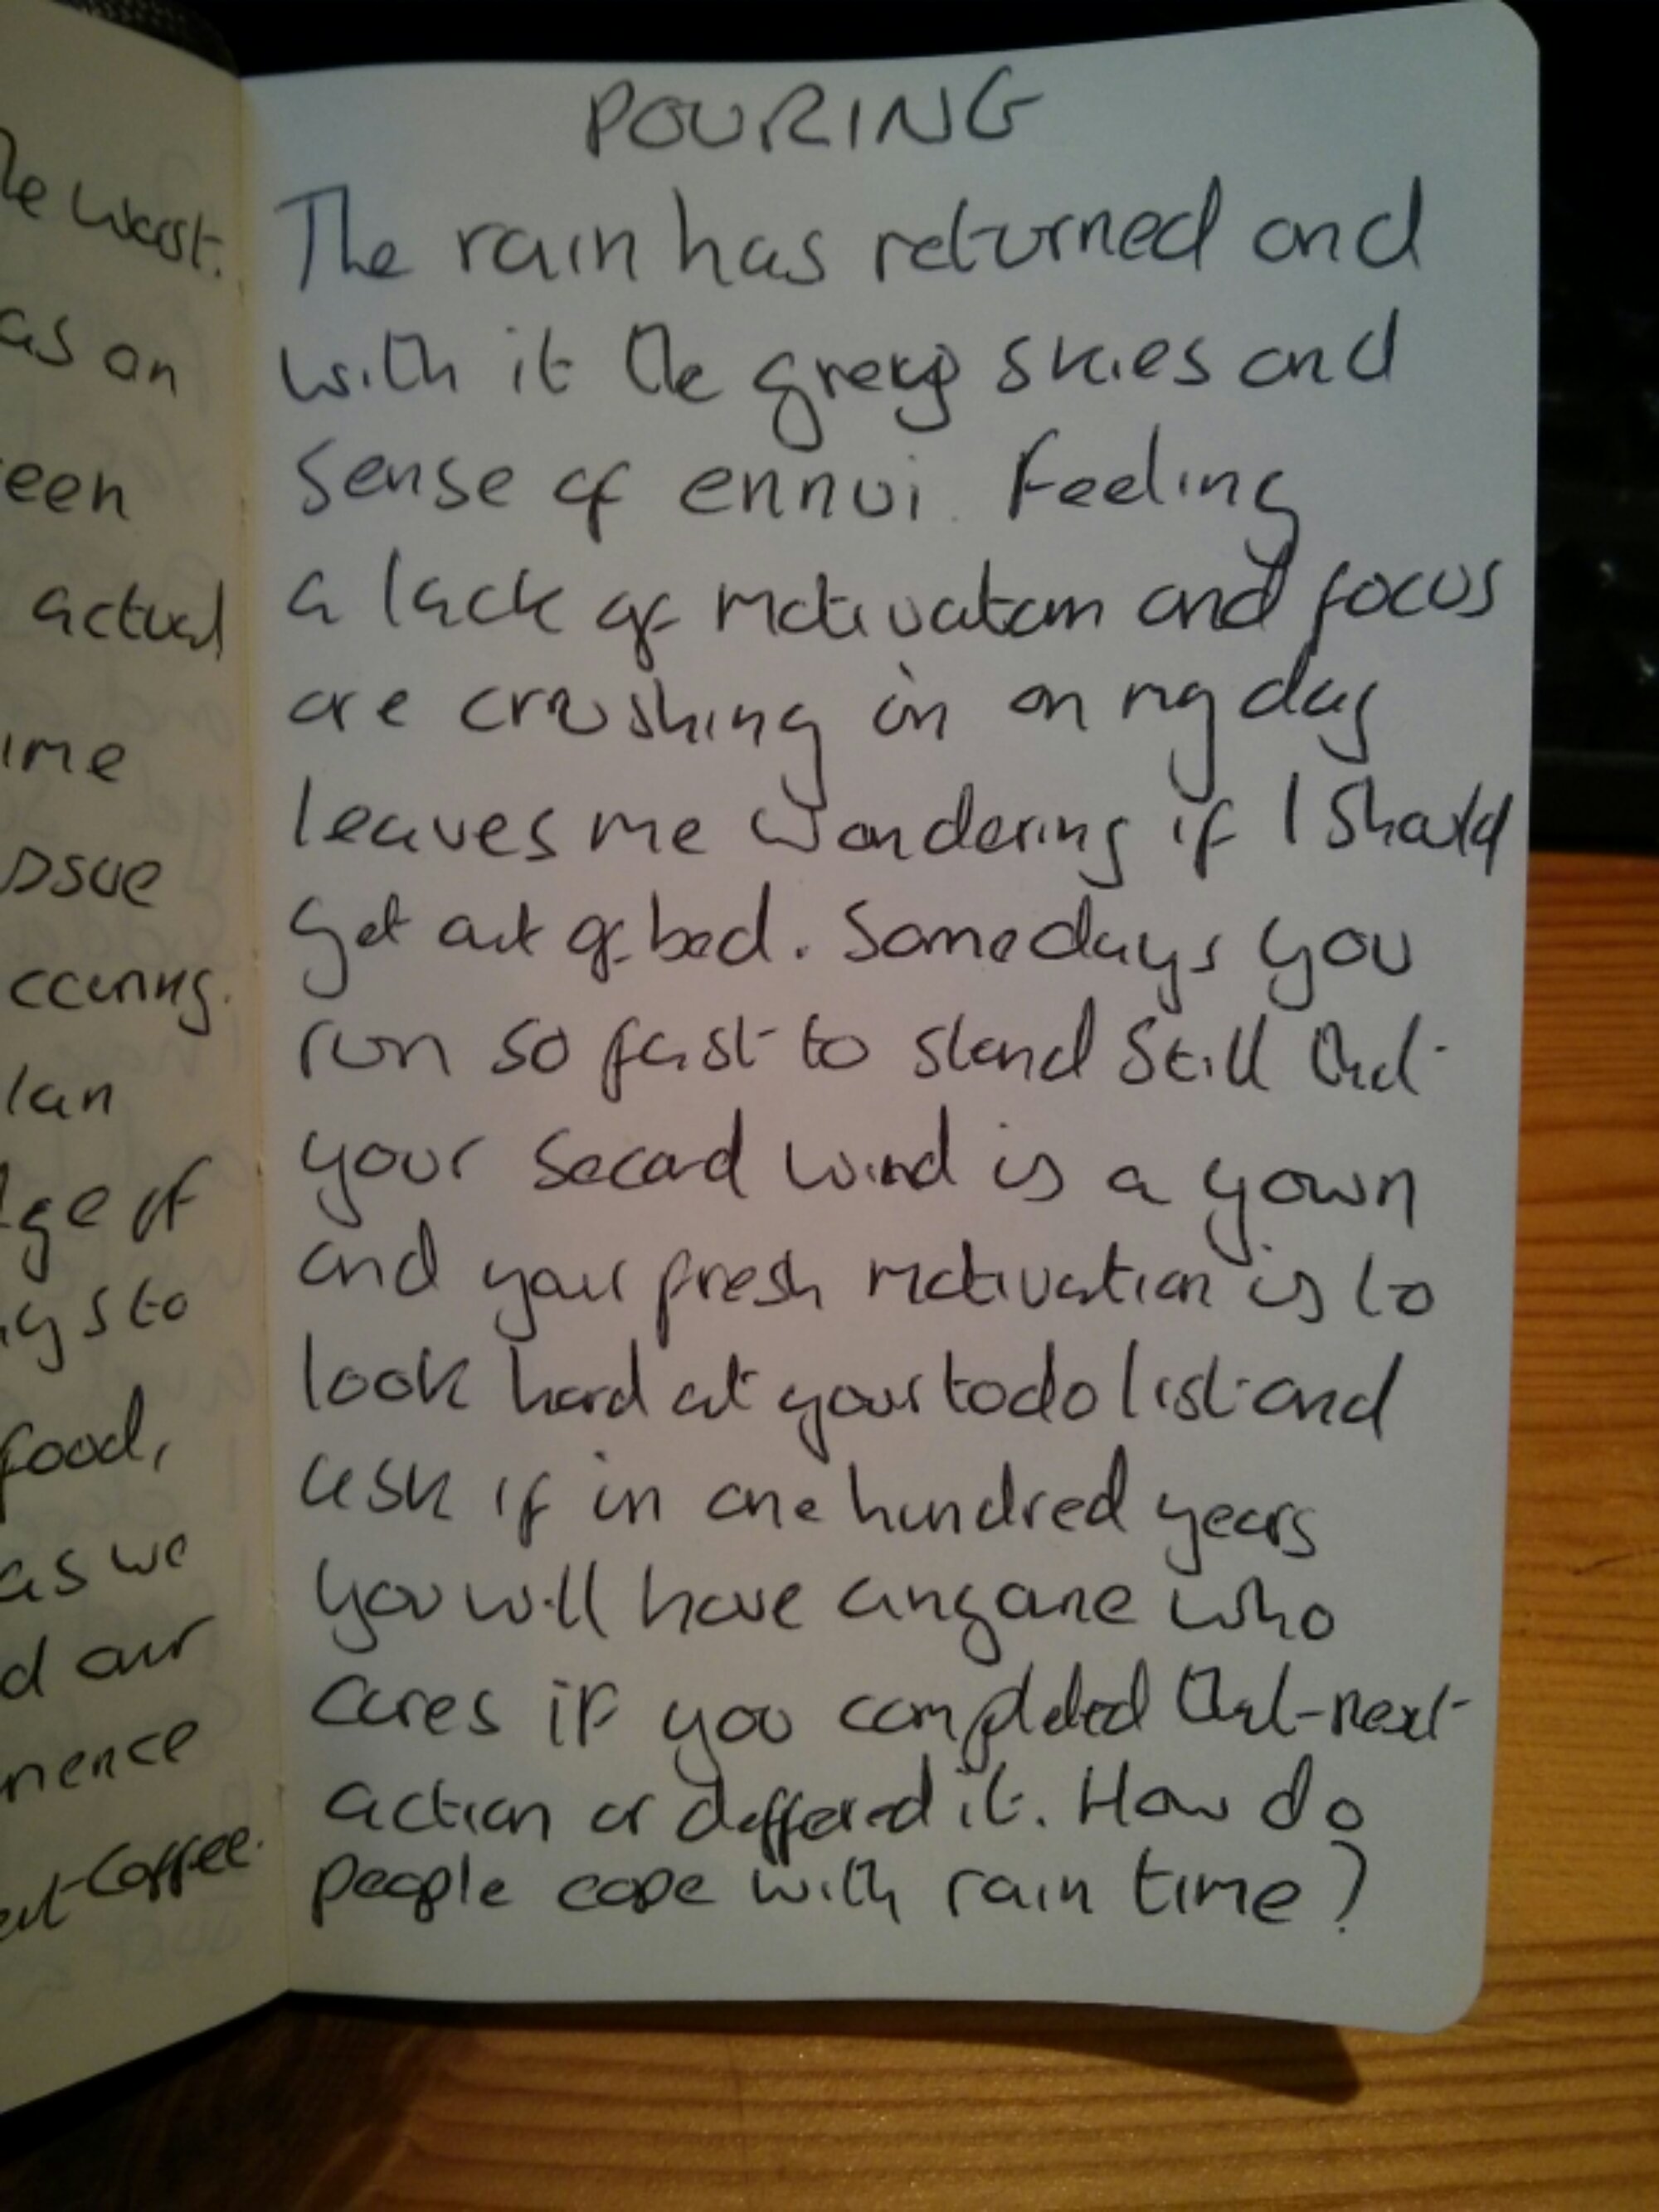 he worst.
as an
een
actual
ime
ssue
ccuring.
lan
ge of
ys to
food,
as we
d our
nence
Coffee.
POURING
The rain has returned and
with it the grey skies and
sense of ennui. Feeling
a lack of motivation and focus
are crushing in on my day
leaves me wondering if I should
get out of bed. Some days you
run so fast to stand still that
your second wind is a yawn
and your fresh motivation is to
look hard at your todo list and
ask if in one hundred years
you will have anyone who
cares if you completed that next
action or deffered it. How do
people cope with rain time?